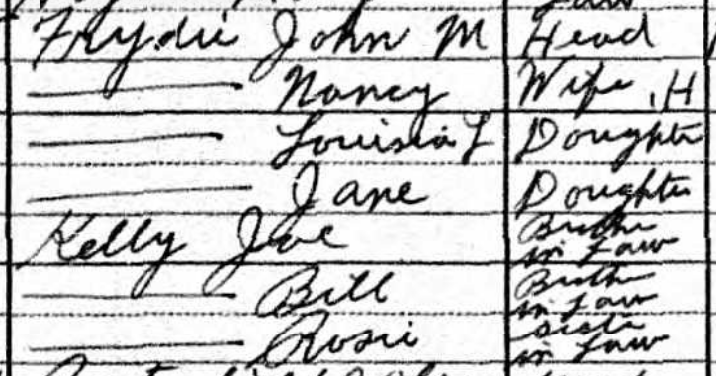 Law
Frydie John M Head
Nancy Wife, H
Louisia L Doughter
Jane Doughter
Kelly Joe Brother in Law
Bill Brother in Law
Rosie Sister in Law